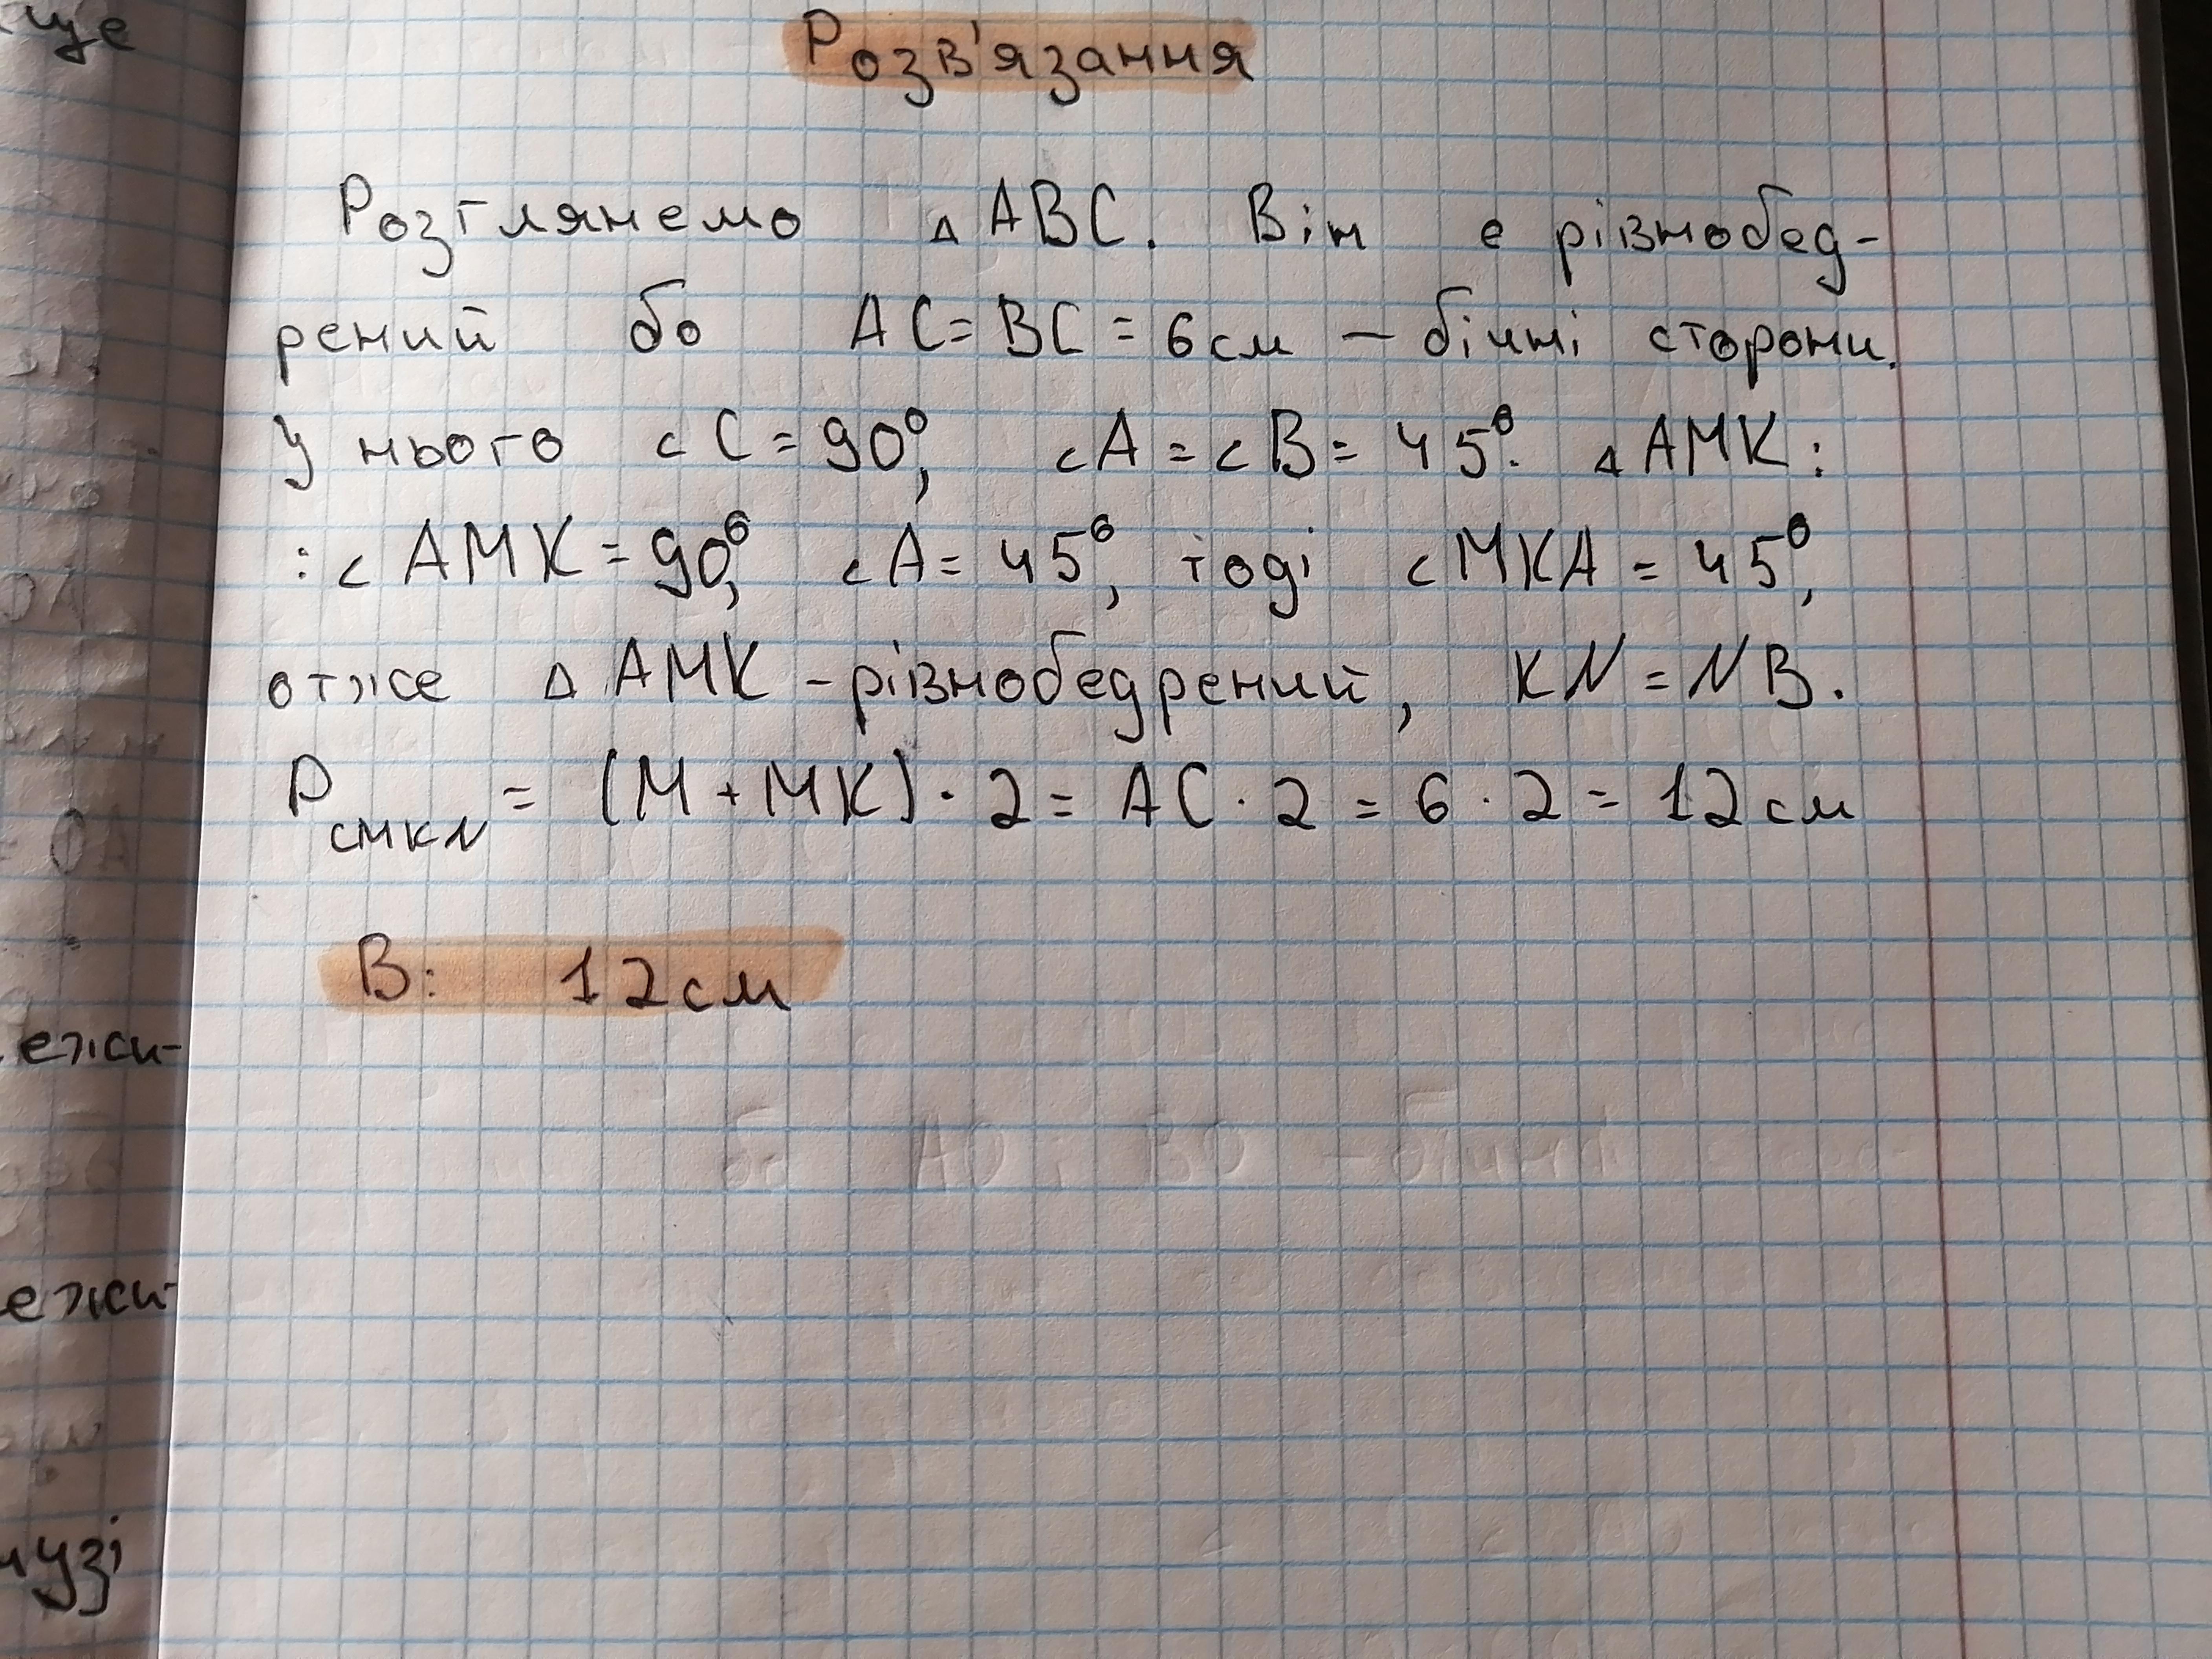 ще
Розв'язання
Розглянемо △ABC. Він є рівнобед-
рений бо AC = BC = 6 см – бічні сторони.
У нього ∠C = 90°, ∠A = ∠B = 45°. △AMK:
: ∠AMK = 90°, ∠A = 45°, тоді ∠MKA = 45°,
отже △AMK – рівнобедрений, KN = NB.
P смкN = (M + MK) · 2 = AC · 2 = 6 · 2 = 12 см
В: 12 см
ежи-
ежи-
узі